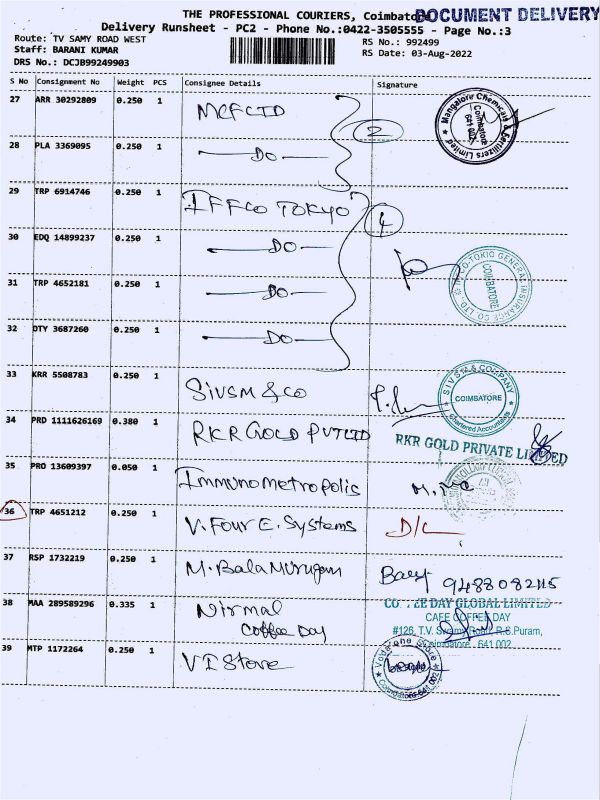 THE PROFESSIONAL COURIERS, Coimbatore
DOCUMENT DELIVERY
Delivery Runsheet - PC2 - Phone No.:0422-3505555 - Page No.:3
Route: TV SAMY ROAD WEST
RS No.: 992499
Staff: BARANI KUMAR
RS Date: 03-Aug-2022
DRS No.: DCJB99249903
S No Consignment No Weight PCS Consignee Details Signature
27 ARR 30292809 0.250 1 MCFLTD
2
Mangalore Chemicals & Fertilizers Limited
Coimbatore
641 002
28 PLA 3369095 0.250 1 DO
29 TRP 6914746 0.250 1 IFFCO TOKYO
4
30 EDQ 14899237 0.250 1 DO
IFFCO-TOKIO GENERAL INSURANCE CO LTD.
COIMBATORE
31 TRP 4652181 0.250 1 DO
32 DTY 3687260 0.250 1 DO
33 KRR 5508783 0.250 1 SIVSM & CO
COIMBATORE
Chartered Accountants
34 PRD 1111626169 0.380 1 RKR GOLD PVTLTD
RKR GOLD PRIVATE LIMITED
35 PRO 13609397 0.050 1 Immunometropolis
36 TRP 4651212 0.250 1 V. Four E. Systems D/L
37 RSP 1732219 0.250 1 M. Bala Murugan
38 MAA 289589296 0.335 1 Nirmal
Coffee Day
COFFEE DAY GLOBAL LIMITED
CAFE COFFEE DAY
#126, T.V. Swamy Road, R.S.Puram,
Coimbatore - 641 002
39 MTP 1172264 0.250 1 VI Store
Vodafone Store
Coimbatore 641 002